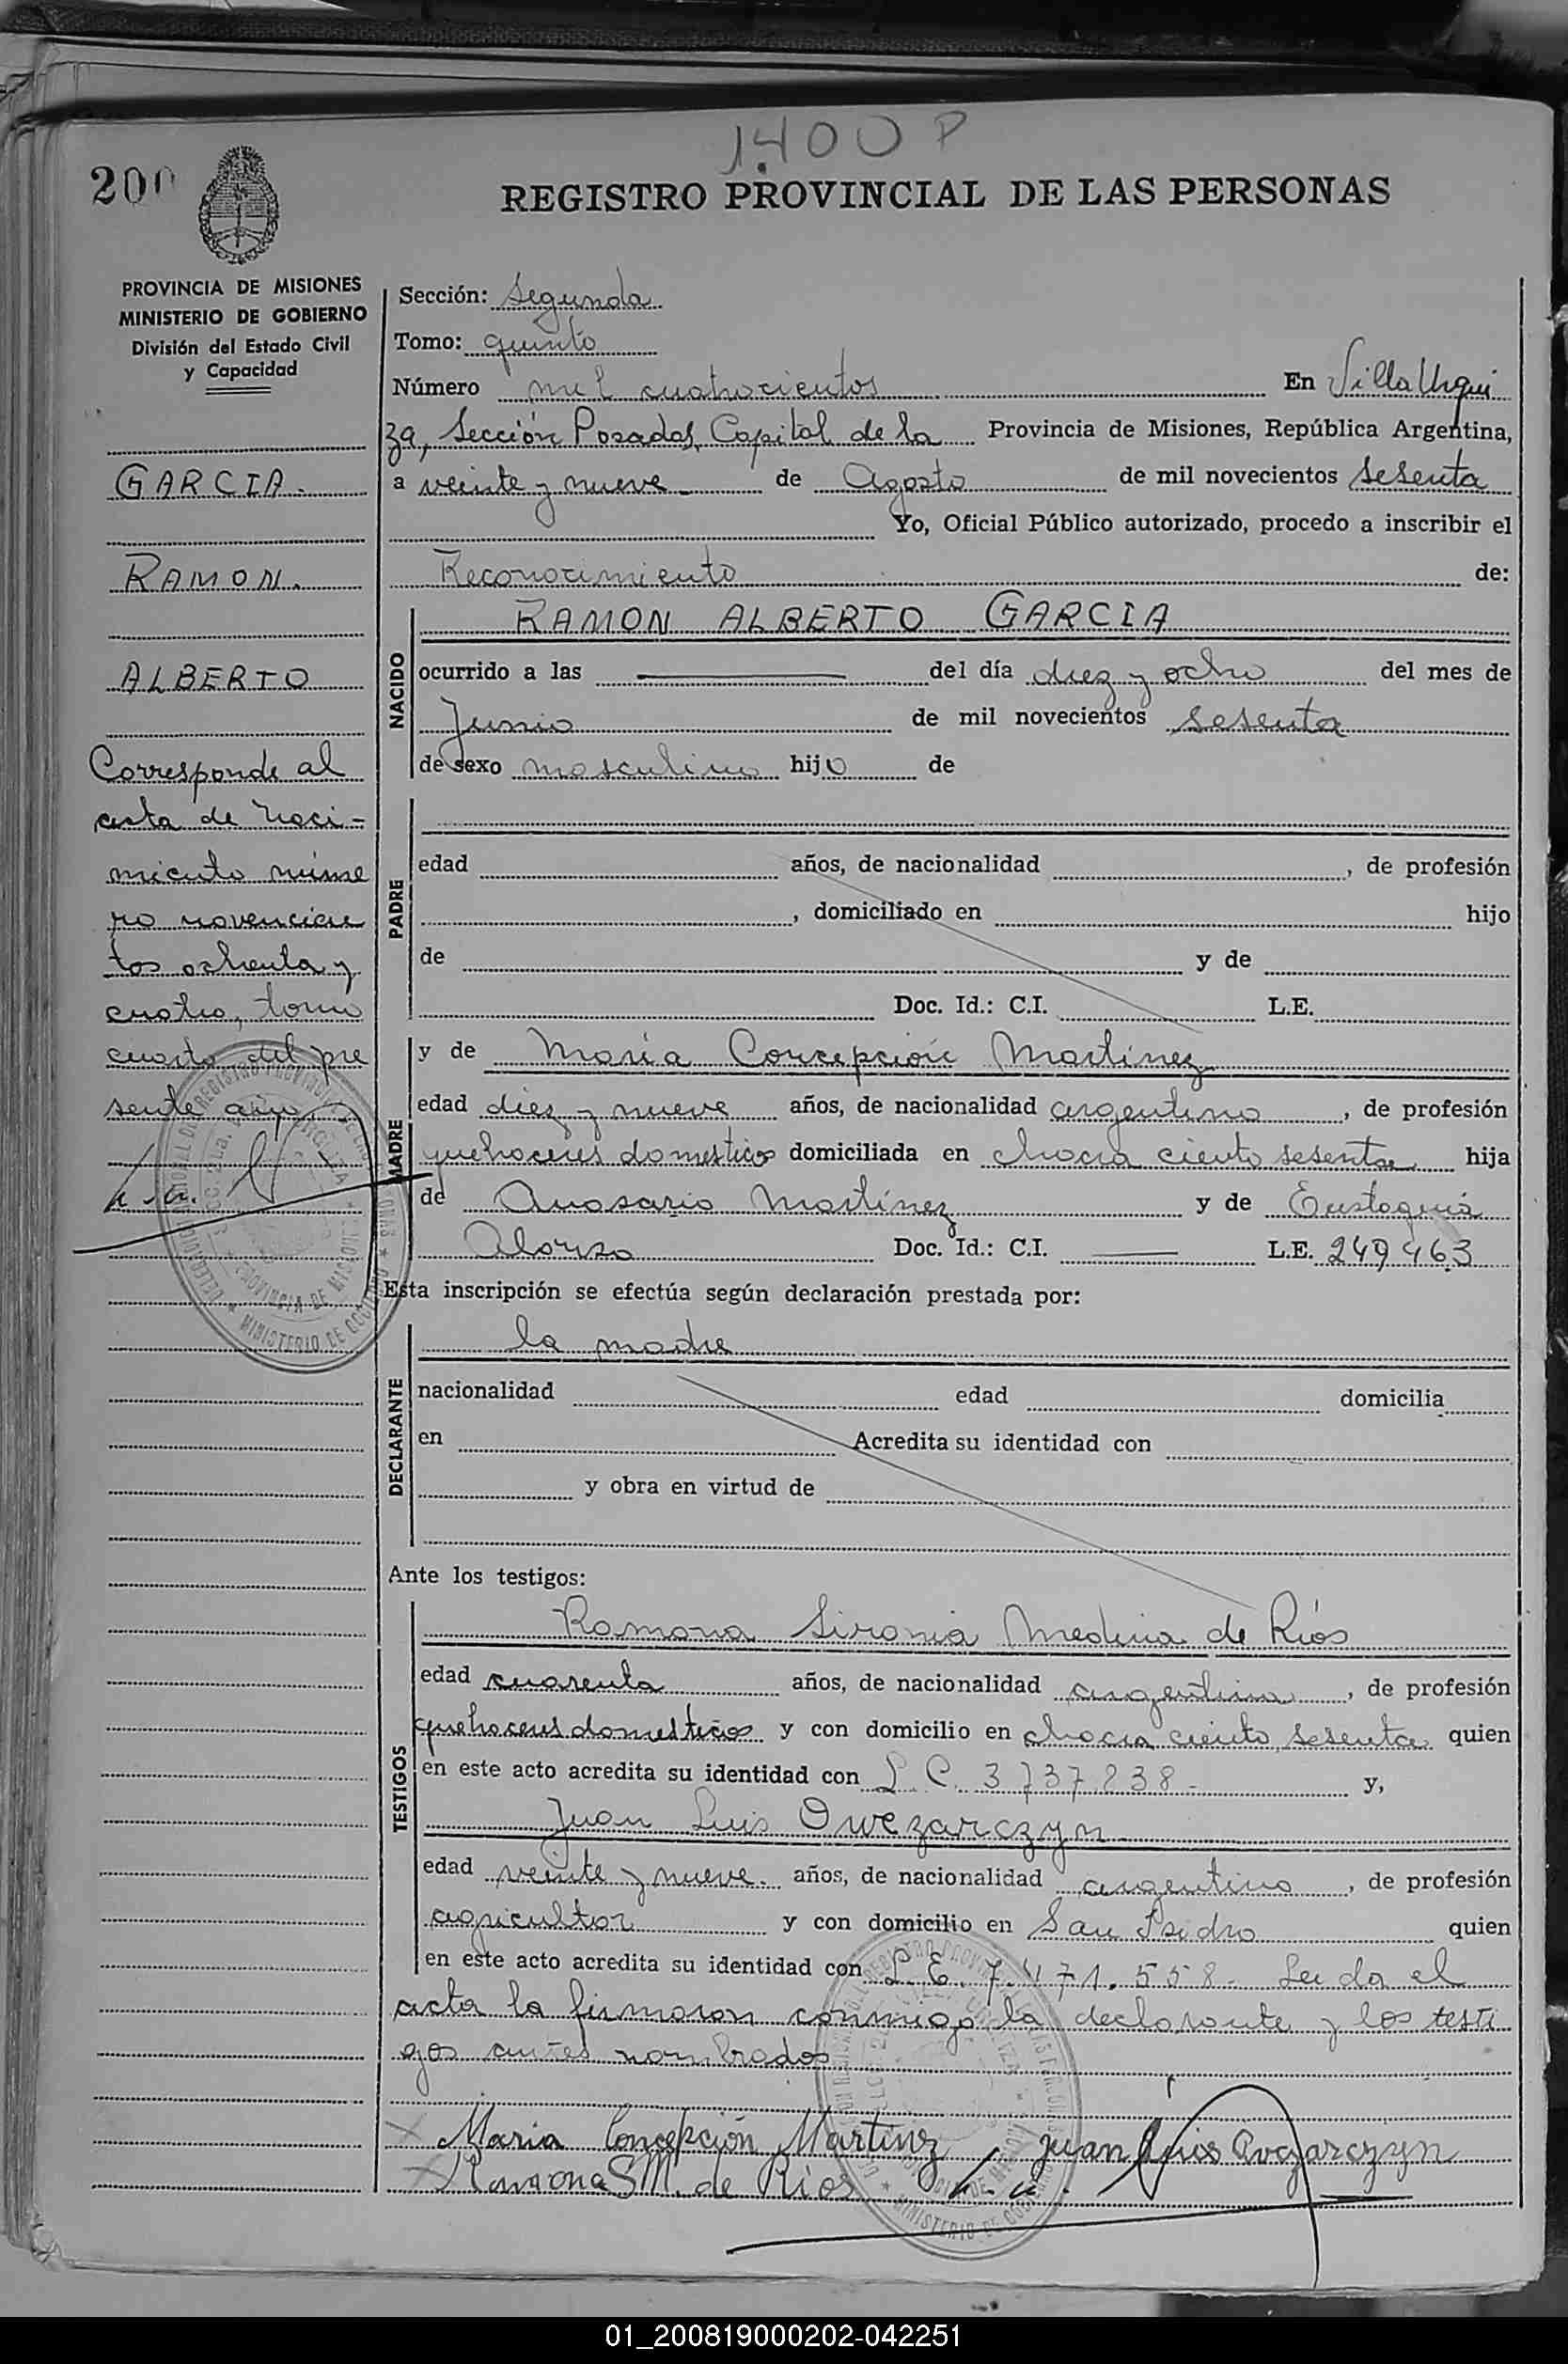 1400 P
200
REGISTRO PROVINCIAL DE LAS PERSONAS
PROVINCIA DE MISIONES
MINISTERIO DE GOBIERNO
División del Estado Civil
y Capacidad
GARCIA.
RAMON.
ALBERTO
Corresponde al
acta de naci-
miento núme
ro novencien
tos ochenta y
cuatro, tomo
cuarto del pre
sente año
Sección: Segunda
Tomo: quinto
Número mil cuatrocientos En Villa Urqui
za, Sección Posadas, Capital de la Provincia de Misiones, República Argentina,
a veinte y nueve de Agosto de mil novecientos sesenta
Yo, Oficial Público autorizado, procedo a inscribir el
Reconocimiento de:
NACIDO
RAMON ALBERTO GARCIA
ocurrido a las del día diez y ocho del mes de
Junio de mil novecientos sesenta
de sexo masculino hijo de
PADRE
edad años, de nacionalidad , de profesión
, domiciliado en hijo
de y de
Doc. Id.: C.I. L.E.
MADRE
y de María Concepción Martínez
edad diez y nueve años, de nacionalidad argentina, de profesión
quehaceres domesticos domiciliada en chacra ciento sesenta hija
de Martínez y de Eustaquia
Alonzo Doc. Id.: C.I. L.E. 249463
Esta inscripción se efectúa según declaración prestada por:
DECLARANTE
la madre
nacionalidad edad domicilia
en Acredita su identidad con
y obra en virtud de
Ante los testigos:
TESTIGOS
Ramona Sironia Medina de Ríos
edad cuarenta años, de nacionalidad argentina, de profesión
quehaceres domesticos y con domicilio en chacra ciento sesenta quien
en este acto acredita su identidad con L.C. 3737238- y,
Juan Luis Owczarczyn
edad veinte y nueve. años, de nacionalidad argentino, de profesión
agricultor y con domicilio en San Isidro quien
en este acto acredita su identidad con L.E. 7.471.558- Leida el
acta la firmaron conmigo la declarante y los testi
gos antes nombrados
Maria Concepción Martinez Juan Luis Ovczarczyn
Ramona S M. de Ríos
01_200819000202-042251